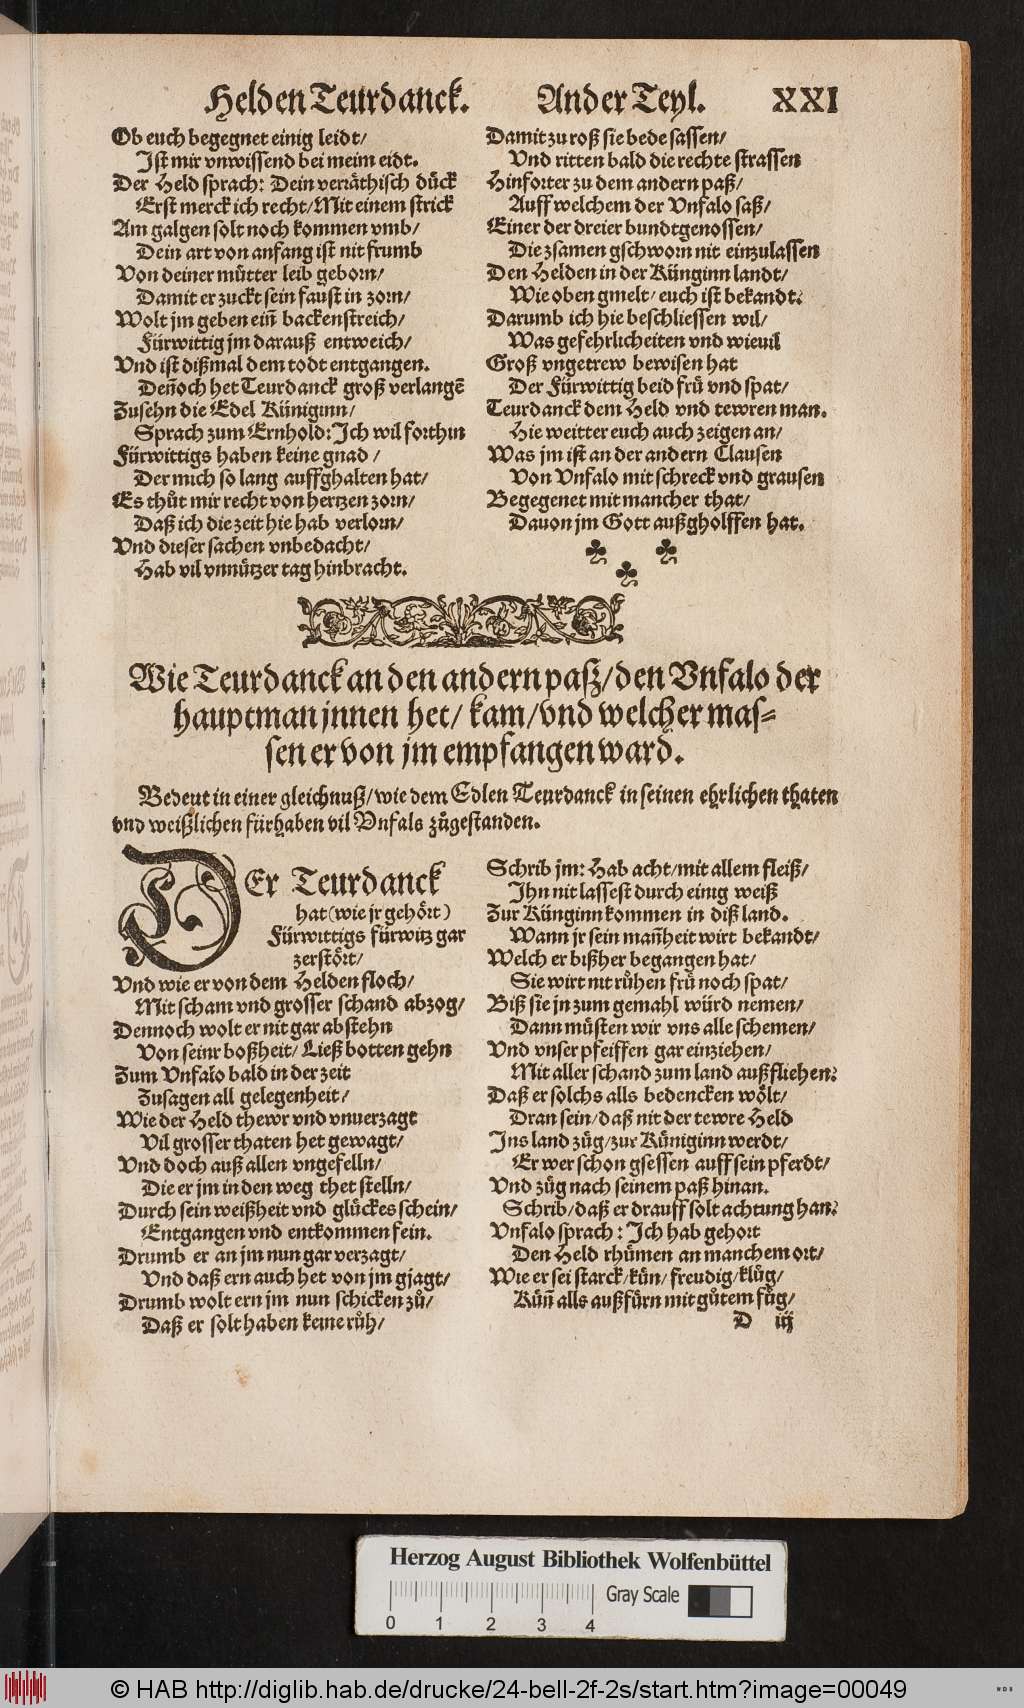 Helden Teurdanck. Ander Teyl. XXI
Ob euch begegnet einig leidt/
Ist mir vnwissend bei meim eidt.
Der Held sprach: Dein verräthisch dück
Erst merck ich recht/Mit einem strick
Am galgen solt noch kommen vmb/
Dein art von anfang ist nit frumb
Von deiner mütter leib geborn/
Damit er zuckt sein faust in zorn/
Wolt jm geben ein̄ backenstreich/
Fürwittig jm darauß entweich/
Vnd ist dißmal dem todt entgangen.
Den̄och het Teurdanck groß verlangē
Zusehn die Edel Küniginn/
Sprach zum Ernhold: Ich wil forthin
Fürwittigs haben keine gnad/
Der mich so lang auffghalten hat/
Es thůt mir recht von hertzen zorn/
Daß ich die zeit hie hab verlorn/
Vnd dieser sachen vnbedacht/
Hab vil vnnützer tag hinbracht.
Damit zu roß sie bede sassen/
Vnd ritten bald die rechte strassen
Hinforter zu dem andern paß/
Auff welchem der Vnfalo saß/
Einer der dreier bundtgenossen/
Die zsamen gschworn nit einzulassen
Den Helden in der Künginn landt/
Wie oben gmelt/ euch ist bekandt.
Darumb ich hie beschliessen wil/
Was gefehrlicheiten vnd wieuil
Groß vngetrew bewisen hat
Der Fürwittig beid frů vnd spat/
Teurdanck dem Held vnd tewren man.
Hie weitter euch auch zeigen an/
Was jm ist an der andern Clausen
Von Vnfalo mit schreck vnd grausen
Begegenet mit mancher that/
Dauon jm Gott außgholffen hat.
Wie Teurdanck an den andern pasz/den Vnfalo der
hauptman jnnen het/ kam/vnd welcher mas=
sen er von jm empfangen ward.
Bedeut in einer gleichnuß/wie dem Edlen Teurdanck in seinen ehrlichen thaten
vnd weißlichen fürhaben vil Vnfals zůgestanden.
DEr Teurdanck
hat (wie jr gehört)
Fürwittigs fürwitz gar
zerstört/
Vnd wie er von dem Helden floch/
Mit scham vnd grosser schand abzog/
Dennoch wolt er nit gar abstehn
Von seinr boßheit/ Ließ botten gehn
Zum Vnfalo bald in der zeit
Zusagen all gelegenheit/
Wie der Held thewr vnd vnuerzagt
Vil grosser thaten het gewagt/
Vnd doch auß allen vngefelln/
Die er jm in den weg thet stelln/
Durch sein weißheit vnd glückes schein/
Entgangen vnd entkommen fein.
Drumb er an jm nun gar verzagt/
Vnd daß ern auch het von jm gjagt/
Drumb wolt ern jm nun schicken zů/
Daß er solt haben keine růh/
Schrib jm: Hab acht/mit allem fleiß/
Ihn nit lassest durch einig weiß
Zur Künginn kommen in diß land.
Wann jr sein man̄heit wirt bekandt/
Welch er bißher begangen hat/
Sie wirt nit růhen frů noch spat/
Biß sie jn zum gemahl würd nemen/
Dann müsten wir vns alle schemen/
Vnd vnser pfeiffen gar einziehen/
Mit aller schand zum land außfliehen.
Daß er solchs alls bedencken wölt/
Dran sein/daß nit der tewre Held
Ins land züg/zur Küniginn werdt/
Er wer schon gsessen auff sein pferdt/
Vnd züg nach seinem paß hinan.
Schrib/daß er drauff solt achtung han.
Vnfalo sprach: Ich hab gehort
Den Held rhůmen an manchem ort/
Wie er sei starck/kün/freudig/klůg/
Kün̄ alls außfürn mit gůtem fůg/
D iij
Herzog August Bibliothek Wolfenbüttel
Gray Scale
0 1 2 3 4
© HAB http://diglib.hab.de/drucke/24-bell-2f-2s/start.htm?image=00049